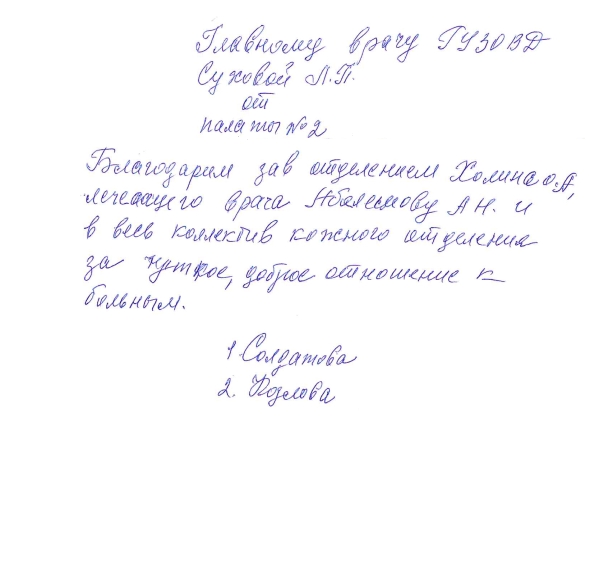 Главному врачу ГУЗОВД
Суховой Л.П.
от
палаты №2
Благодарим зав отделением Холина О.А,
лечащего врача А.Н. и
в весь коллектив кожного отделения
за чуткое, доброе отношение к
больным.
1 Солдатова
2. Козлова